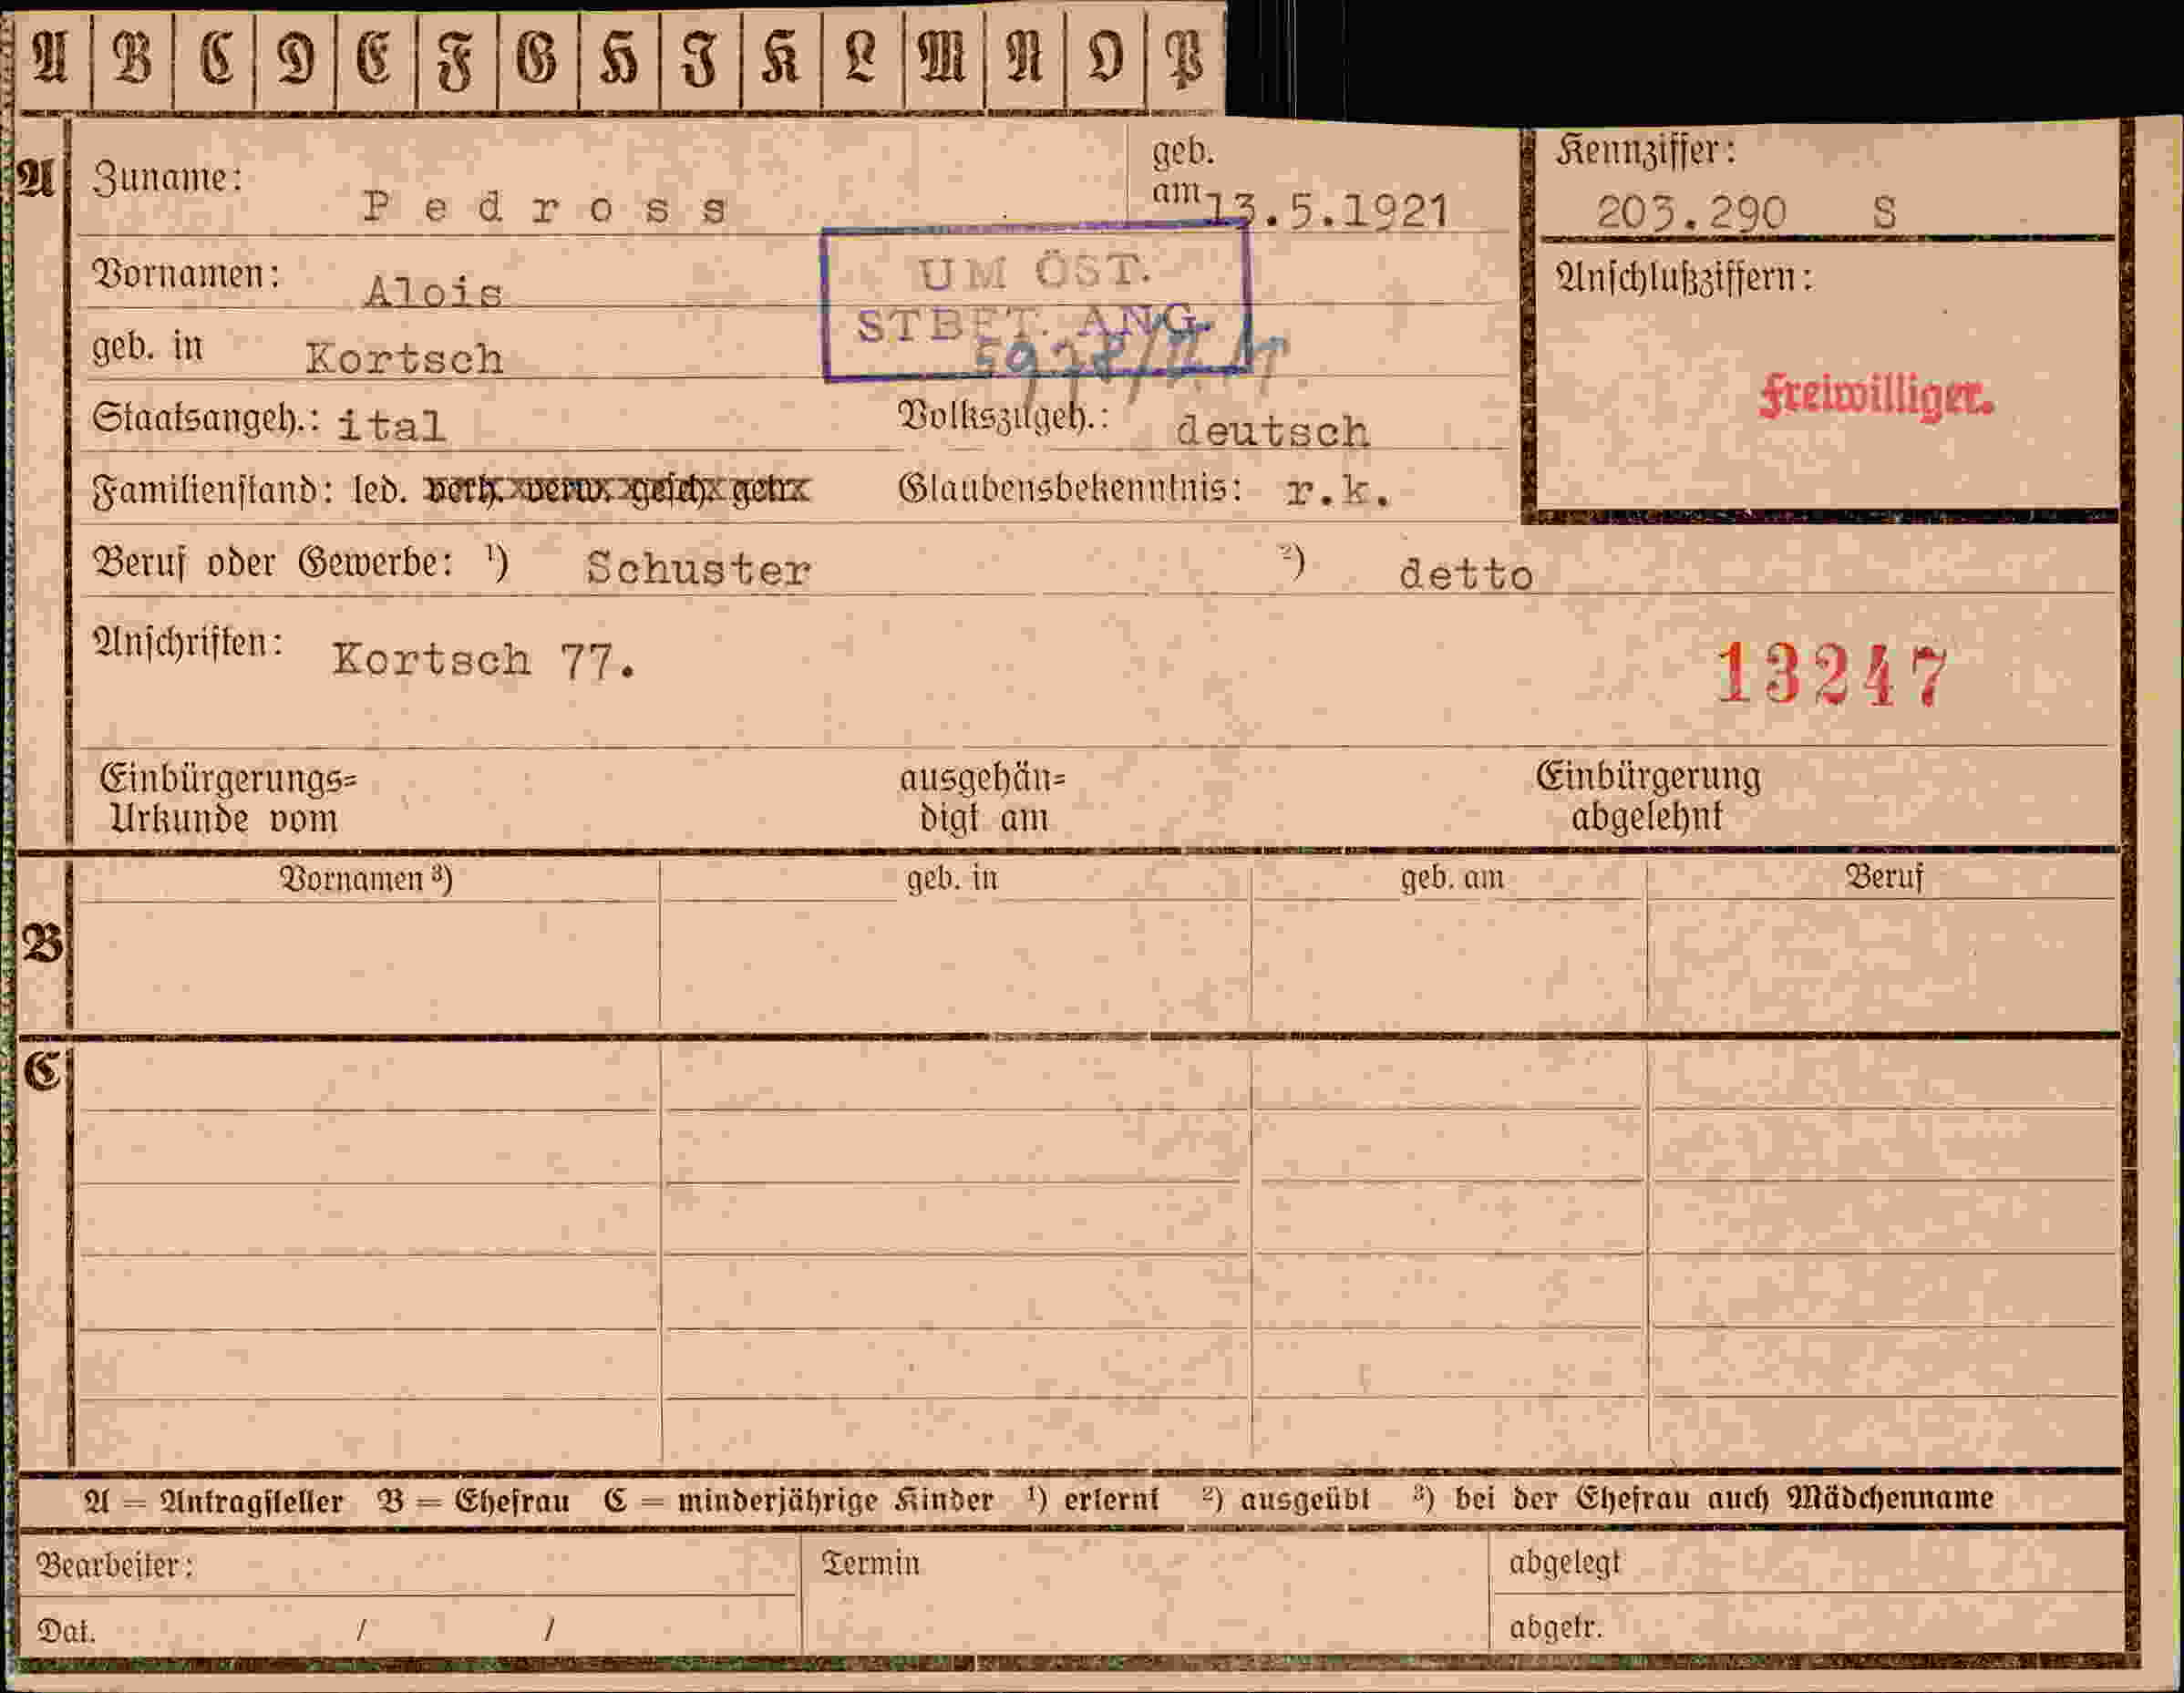 A B C D E F G H I K L M N O P
A Zuname: Pedross geb. am 13.5.1921 Kennziffer: 203.290 S
UM ÖST. STBET. ANG.
Vornamen: Alois Anschlußziffern:
geb. in Kortsch
Freiwilliger.
Staatsangeh.: ital Volkszugeh.: deutsch
Familienstand: led. verh. verw. gesch. getr. Glaubensbekenntnis: r.k.
Beruf oder Gewerbe: ¹) Schuster ²) detto
Anschriften: Kortsch 77. 13247
Einbürgerungs= ausgehän= Einbürgerung
Urkunde vom digt am abgelehnt
Vornamen ³) geb. in geb. am Beruf
B
C
A = Antragsteller B = Ehefrau C = minderjährige Kinder ¹) erlernt ²) ausgeübt ³) bei der Ehefrau auch Mädchenname
Bearbeiter: Termin abgelegt
Dat. / / abgetr.